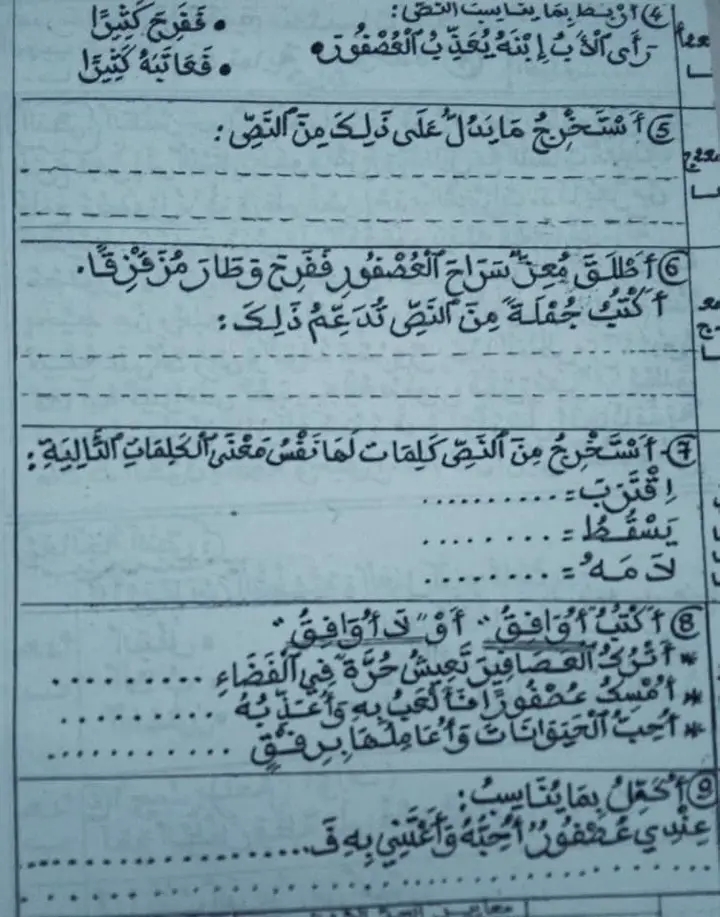 ④ أَرْبِطُ بِمَا يُنَاسِبُ النَّصَّ:
• فَفَرِحَ كَثِيرًا
رَأَى الْأَبُ ابْنَهُ يُعَذِّبُ الْعُصْفُورَ •
• فَعَاتَبَهُ كَثِيرًا
⑤ أَسْتَخْرِجُ مَا يَدُلُّ عَلَى ذَلِكَ مِنَ النَّصِّ:
⑥ أَطْلَقَ مُعِزٌّ سَرَاحَ الْعُصْفُورِ فَفَرِحَ وَطَارَ مُزَقْزِقًا.
أَكْتُبُ جُمْلَةً مِنَ النَّصِّ تُدَعِّمُ ذَلِكَ:
⑦- أَسْتَخْرِجُ مِنَ النَّصِّ كَلِمَات لَهَا نَفْسُ مَعْنَى الْكَلِمَاتِ التَّالِيَةِ:
اِقْتَرَبَ = ..........
يَسْقُطُ = ........
لَامَهُ = ........
⑧ أَكْتُبُ "أُوَافِقُ" أَوْ "لَا أُوَافِقُ"
* أَتْرُكُ الْعَصَافِيرَ تَعِيشُ حُرَّةً فِي الْفَضَاءِ ..........
* أُمْسِكُ عُصْفُورًا فَأَلْعَبُ بِهِ وَأُعَذِّبُهُ ..........
* أُحِبُّ الْحَيَوَانَاتَ وَأُعَامِلُهَا بِرِفْقٍ ............
⑨ أُكْمِلُ بِمَا يُنَاسِبُ:
عِنْدِي عُصْفُورٌ أُحِبُّهُ وَأَعْتَنِي بِهِ فَ....................